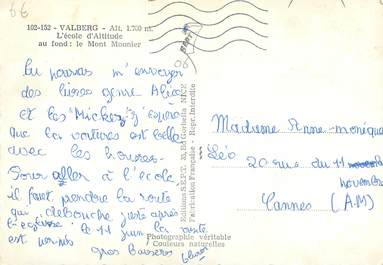 102-152 - VALBERG - Alt. 1.700 m.
L'école d'Altitude
au fond: le Mont Mounier
Tu pourras m'envoyer
des livres genre Alice
et les "Mickey" j'espère
que la voiture est belle
avec les housses.
Pour aller à l'école
il faut prendre la route
qui debouche juste après
l'eglise. le 11 juin la route
est
gros Baisers
Editions S.E.P.T. 33, Bd Gorbella NICE
Fabrication Française - Repr. Interdite
Photographie véritable
Couleurs naturelles
Madame Anne-monique
Léo
20 rue du 11
novembre
Cannes (A.M)